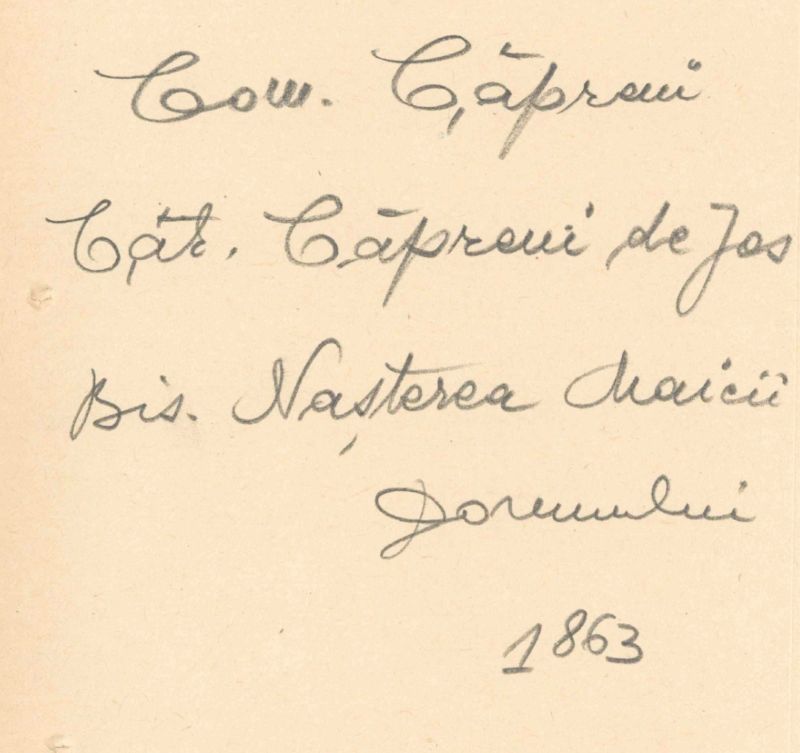 Com. Căpreni
Căt. Căpreni de Jos
Bis. Nașterea Maicii
Domnului
1863